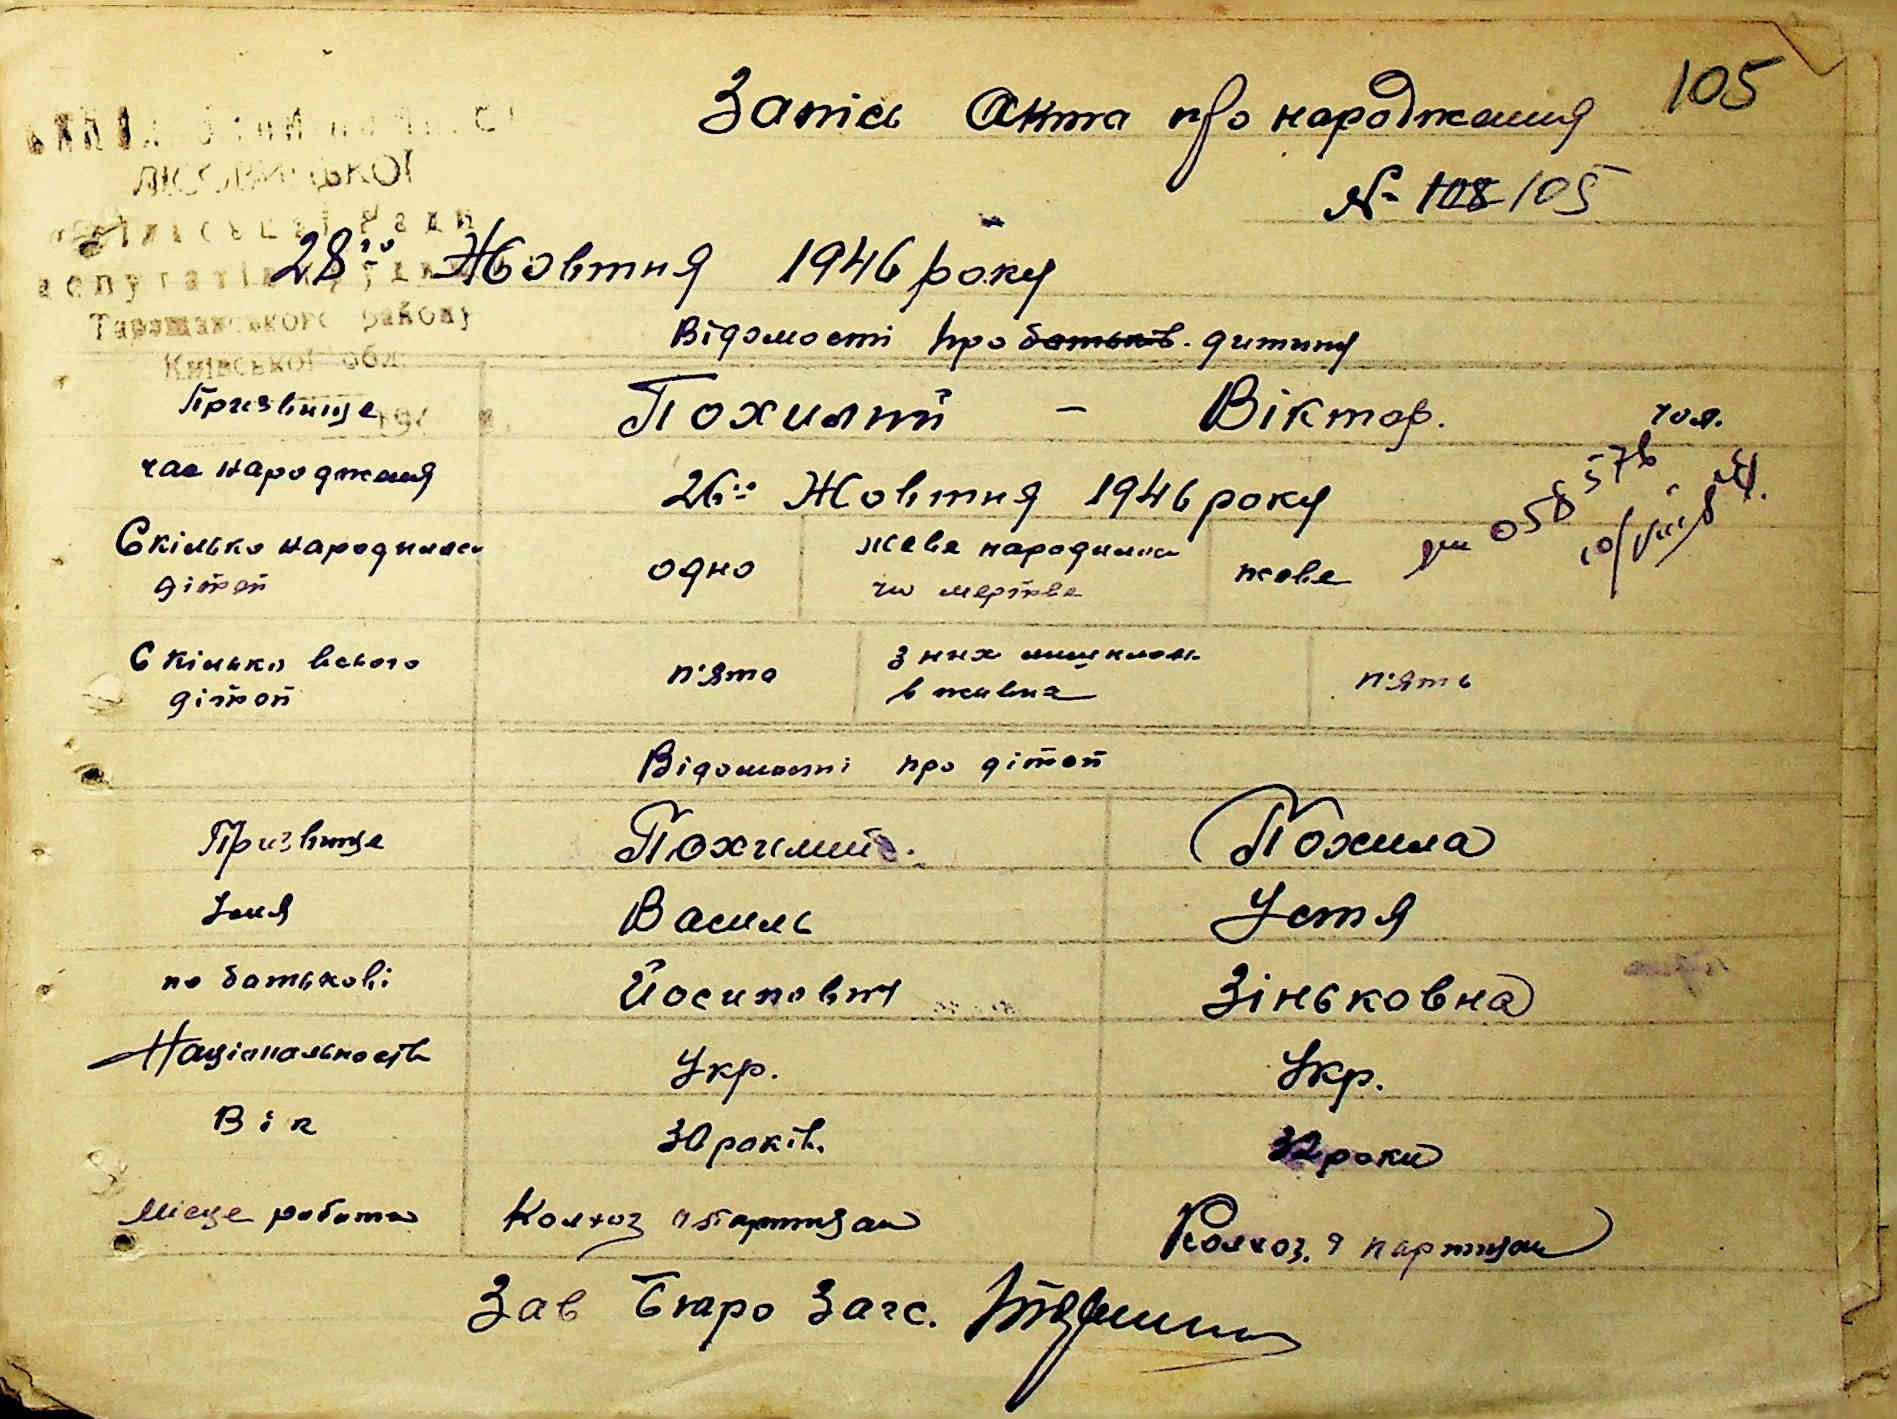 105
Запісь Акта про народження
№ 108 105
ЛІСОВИЦЬКОЇ
Ради
депутатів
Таращанського району
Київської обл.
28го Жовтня 1946 року
Відомості про батьків. дитину
Призвище Похилий – Віктор. чол.
час народження 26го Жовтня 1946 року
058576
Скілько народилось дітей одно живе народилось чи мертве живе
Скілько всього дітей п'ято з них лишилось в живих п'ять
Відомості про дітей
Призвище Похилий. Похила
Імя Василь Устя
по батькові Йосипович Зіньковна
Національность Укр. Укр.
Вік 30 років. 32 роки
Місце роботи Колхоз партизан Колхоз. партизан
Зав Бюро Загс.